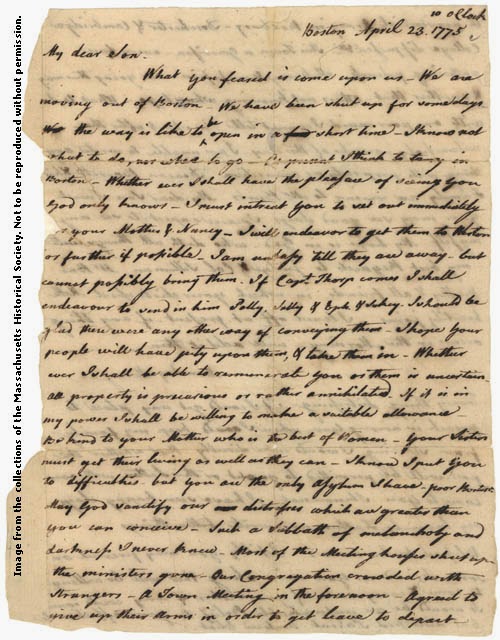 Image from the collections of the Massachusetts Historical Society. Not to be reproduced without permission.
10 oClock
Boston April 23. 1775
My dear Son.
What you feared is come upon us - We are
moving out of Boston - We have been shut up for some days
the way is like to be open in a short time - I know not
what to do, nor where to go - At present I think to tarry in
Boston - Whether ever I shall have the pleasure of seeing you
God only knows - I must intreat you to set out immediately
for your Mother & Nancy - I will endeavor to get them to
or further if possible - I am unhapy till they are away - but
cannot possibly bring them. If Capt. Thorp comes I shall
endeavour to send in him Polly, Sally & Eph. & Sukey. I should be
glad there were any other way of conveying them - I hope your
people will have pity upon them, & take them in - Whether
ever I shall be able to remunerate you or them is uncertain
all property is precarious or rather annihilated. If it is in
my power I shall be willing to make a suitable allowance
Be kind to your Mother who is the best of Women - Your Sisters
must get their living as well as they can - I know I put you
to difficulties - but you are the only Asylum I have - poor Boston
May God sanctify our distresses which are greater than
you can conceive - Such a Sabbath of melancholy and
darkness I never knew. Most of the Meeting houses shut up -
the ministers gone - Our Congregation crowded with
Strangers - A Town Meeting in the forenoon - Agreed to
give up their Arms in order to get leave to depart